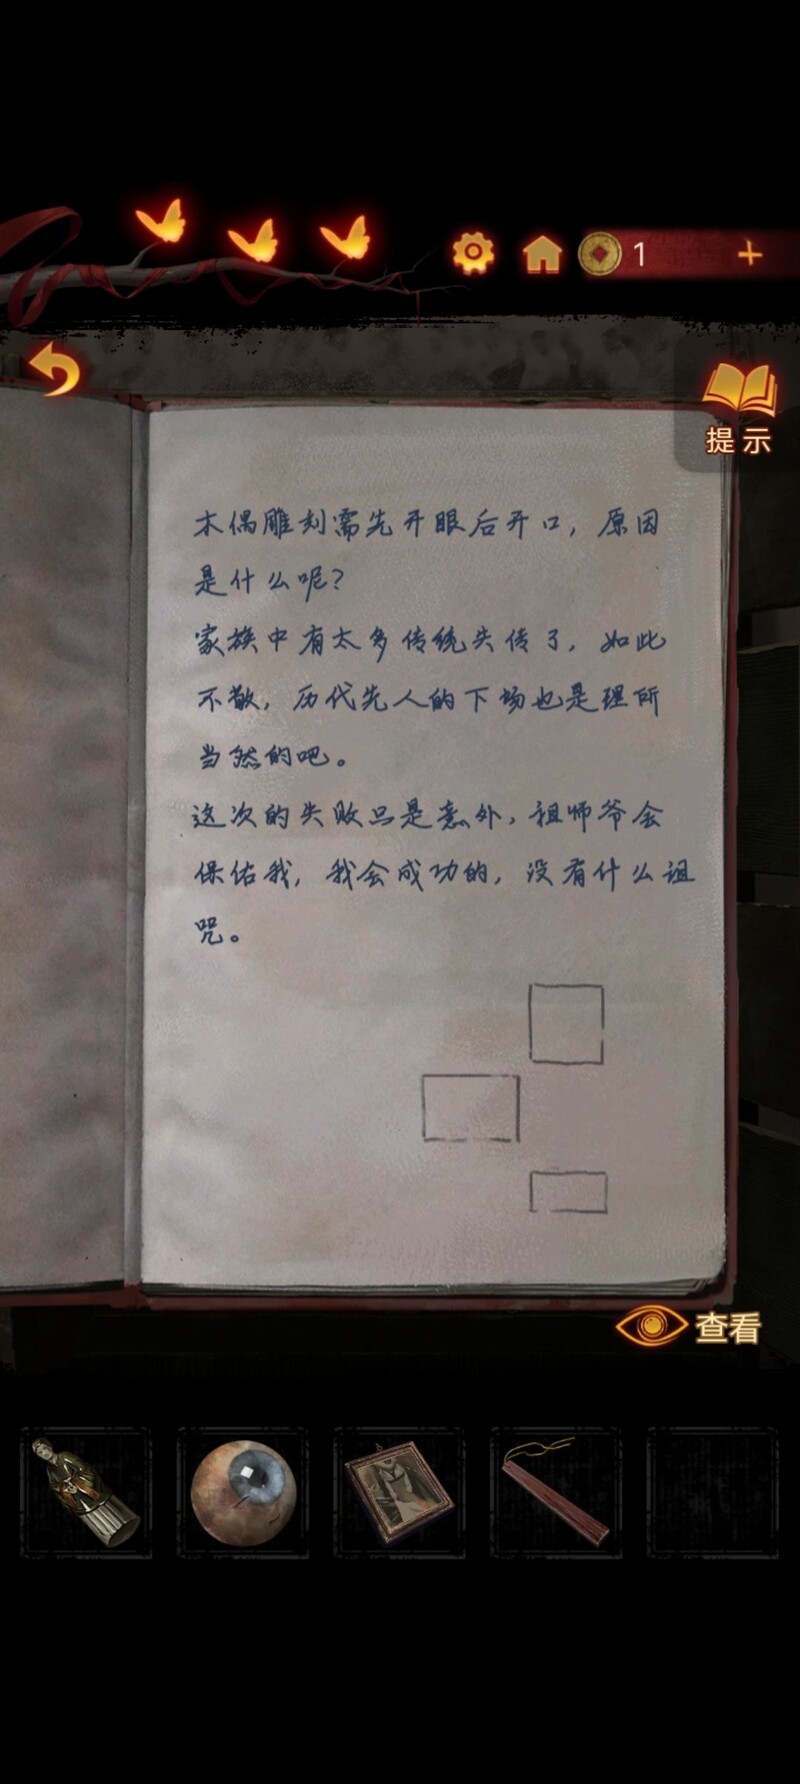 1
提示
木偶雕刻需先开眼后开口，原因
是什么呢？
家族中有太多传统失传了，如此
不敬，历代先人的下场也是理所
当然的吧。
这次的失败只是意外，祖师爷会
保佑我，我会成功的，没有什么诅
咒。
查看